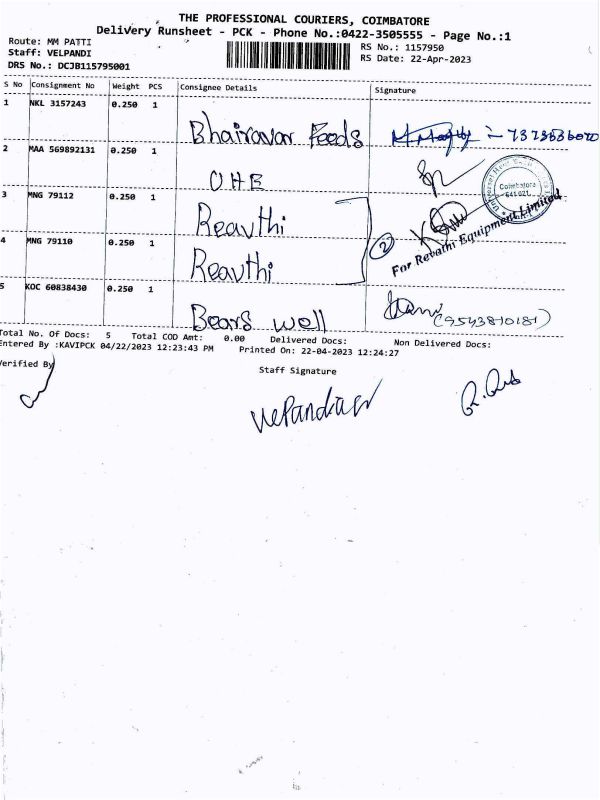 THE PROFESSIONAL COURIERS, COIMBATORE
Delivery Runsheet - PCK - Phone No.:0422-3505555 - Page No.:1
Route: MM PATTI
Staff: VELPANDI
DRS No.: DCJB115795001
RS No.: 1157950
RS Date: 22-Apr-2023
S No Consignment No Weight PCS Consignee Details Signature
1 NKL 3157243 0.250 1
Bhairavar Feeds
2 MAA 569892131 0.250 1
OHE
Coimbatore
641 021
3 MNG 79112 0.250 1
Reavthi
2
For Revathi Equipment Limited
4 MNG 79110 0.250 1
Reavthi
5 KOC 60838430 0.250 1
Bears well
(9543810181)
Total No. Of Docs: 5 Total COD Amt: 0.00 Delivered Docs: Non Delivered Docs:
Entered By :KAVIPCK 04/22/2023 12:23:43 PM Printed On: 22-04-2023 12:24:27
Verified By
Staff Signature